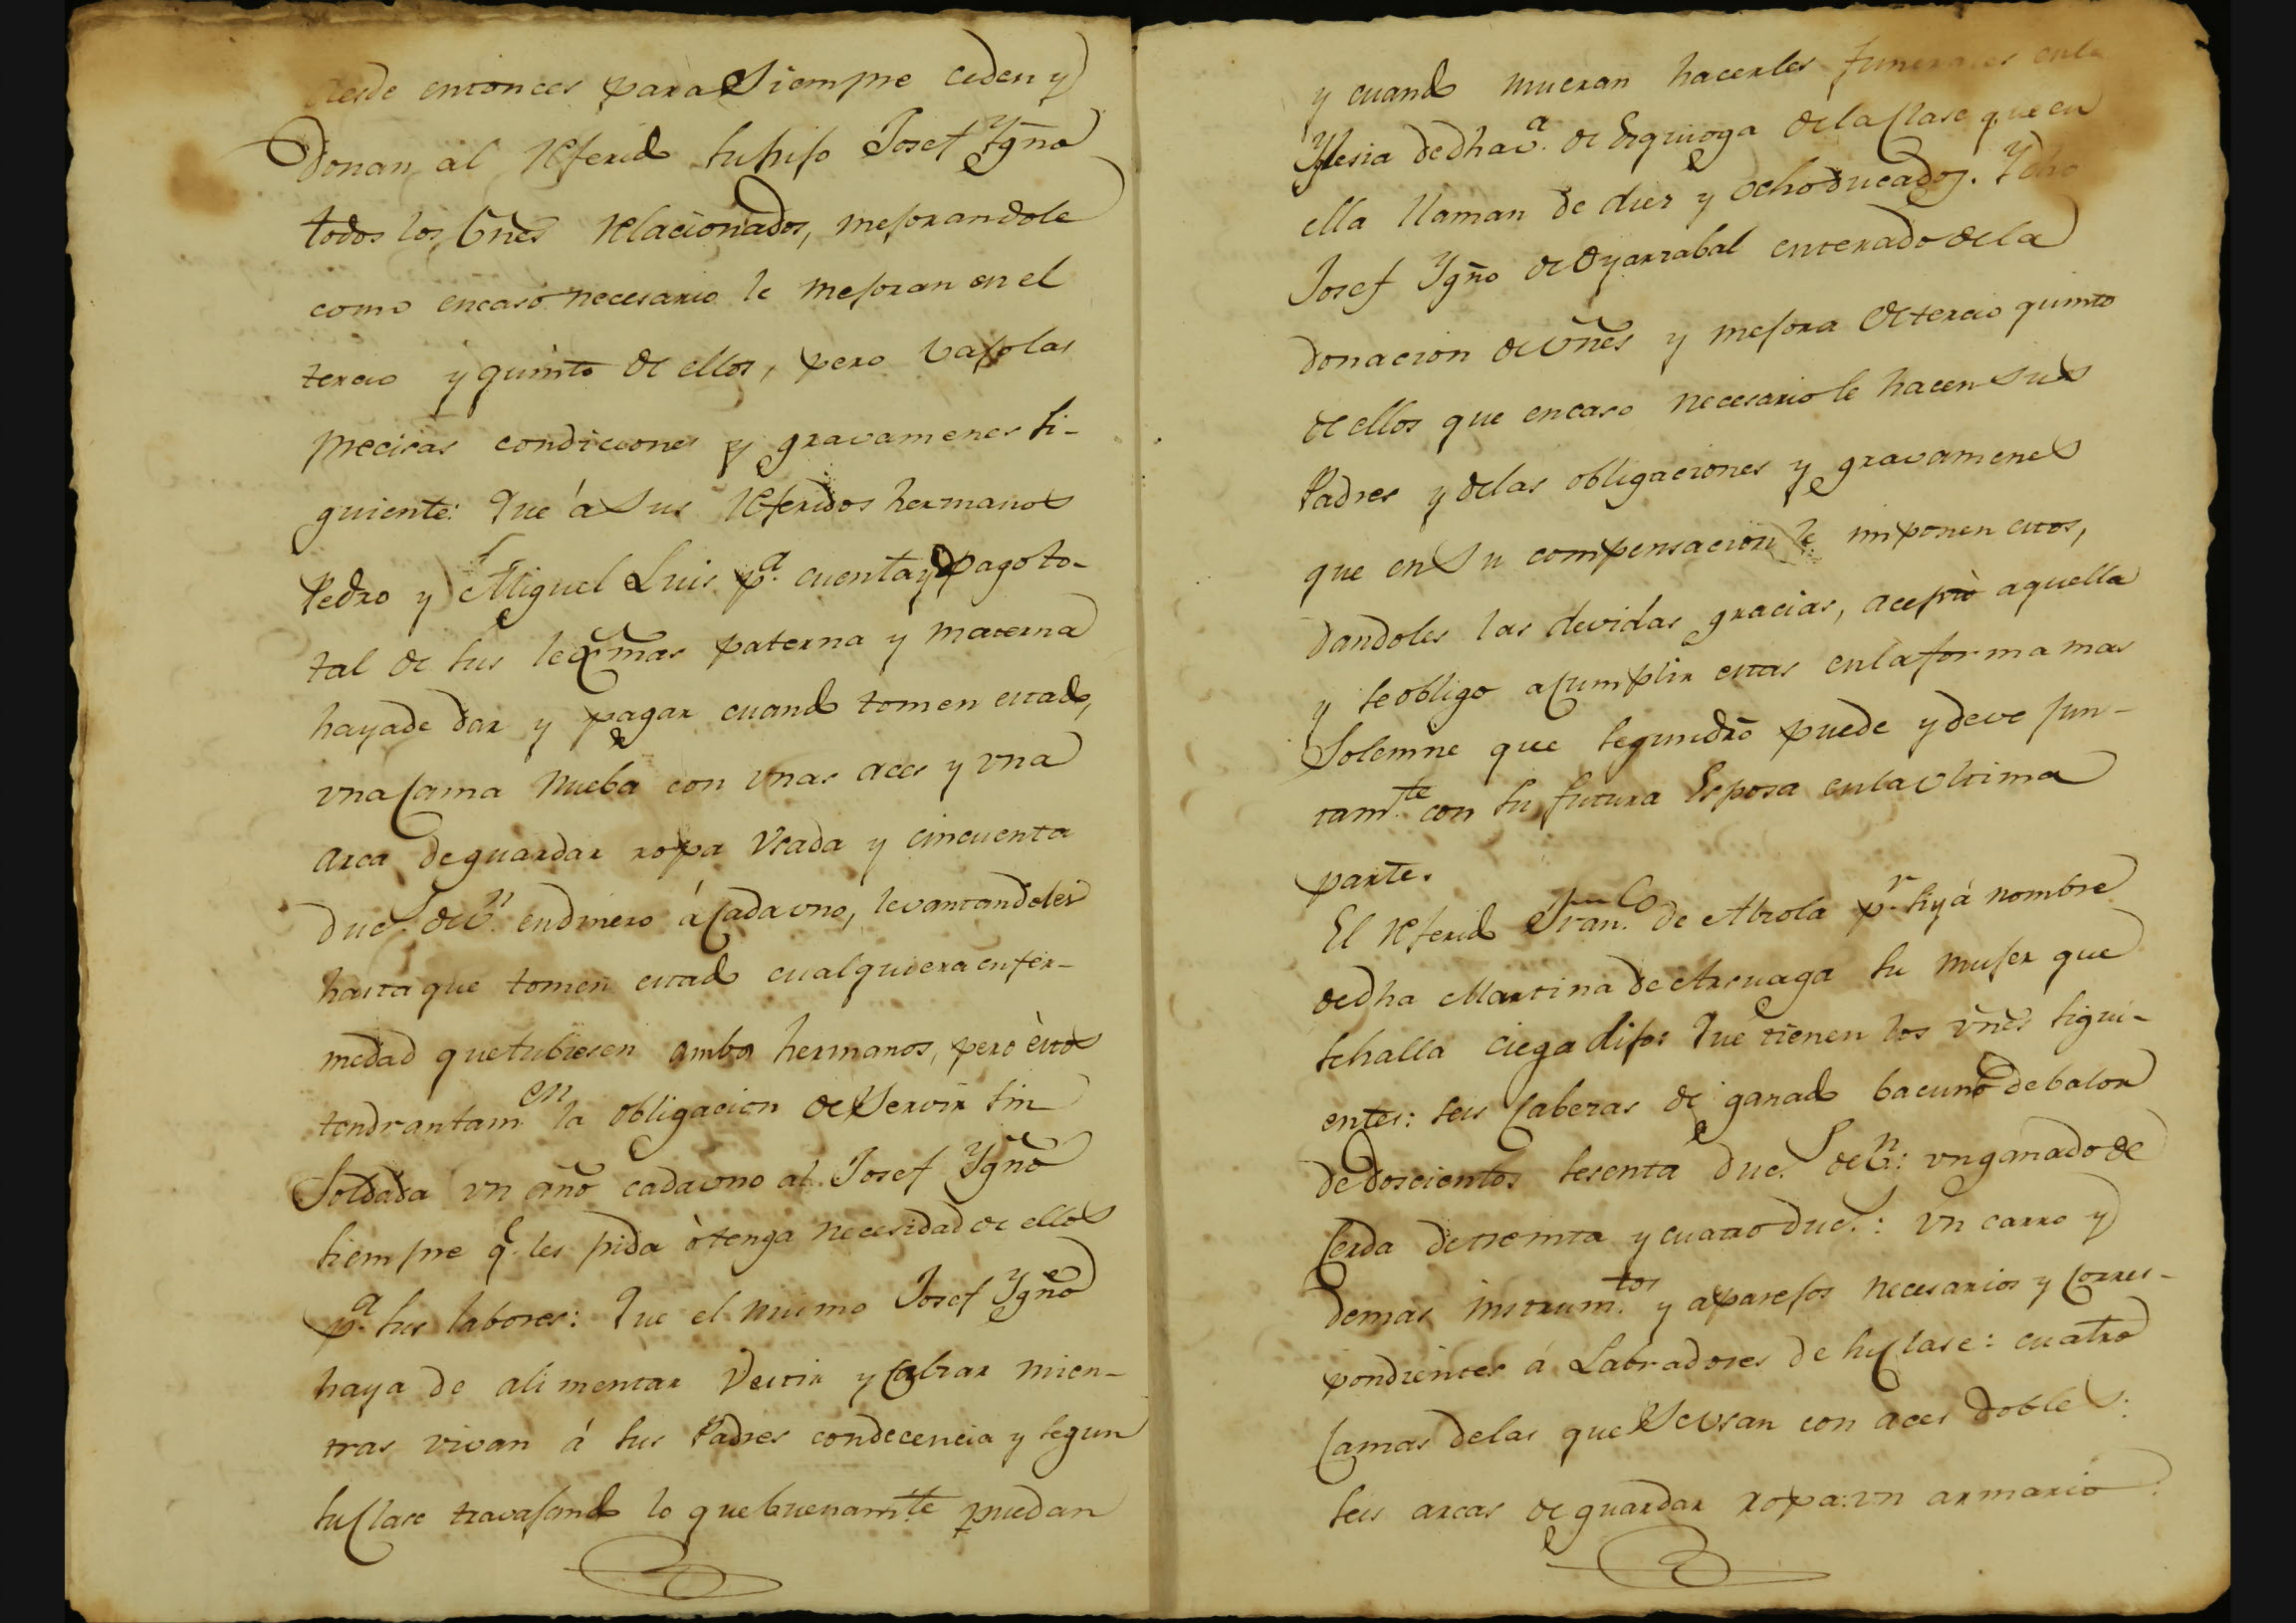 desde entonces para Siempre ceden y
Donan al Referido su hijo Josef Ygño
todos los vnes Relacionados, mejorandole
como encaso necesario le mejoran en el
tercio y quinto de ellos, pero vajo las
precisas condiciones y gravamenes si-
guiente: Que á sus Referidos hermanos
Pedro y Miguel Luis pa. cuenta y pago to-
tal de sus lexmas paterna y materna
haya de dar y pagar cuando tomen estado,
vna cama nueba con vnas aces y vna
arca de guardar ropa Vsada y cincuenta
ducs. de vn. en dinero á cada vno, levantandoles
hasta que tomen estado cualquiera enfer-
medad que tubiesen ambos hermanos, pero èstos
tendran tamen. la obligacion de Servir sin
Soldada vn año cada vno al Josef Ygño
siempre q. les pida ò tenga necesidad de ellos
pa. sus labores: Que el mismo Josef Ygño
haya de alimentar Vestir y calzar mien-
tras vivan á sus Padres con decencia y segun
su clase travajando lo que buenamte. puedan
y cuando mueran hacerles funerales en la
Yglesia de dha va. de Ezquioga de la clase que en
ella llaman de diez y ocho ducados. Y dho
Josef Ygño de Oyarzabal enterado de la
donacion de vnes y mejora de tercio quinto
de ellos que encaso necesario le hacen sus
Padres y de las obligaciones y gravamenes
que en su compensacion le imponen estos,
dandoles las devidas gracias, aceptò aquella
y se obligo a cumplir estas en la forma mas
Solemne que segun dro puede y deve jun-
tamte. con su futura Esposa en la vltima
parte.
El Referido Franco. de Alzola pr. si y á nombre
de dha Martina de Aranaga su mujer que
se halla ciega dijo: Que tienen los vnes sigui-
entes: seis cabezas de ganado bacuno de balor
de doscientos sesenta ducs. de vn.: vn ganado de
cerda de treinta y cuatro ducs.: vn carro y
demas instrumtos. y aparejos necesarios y corres-
pondientes á Labradores de su clase: cuatro
camas de las que Se vsan con aces dobles:
seis arcas de guardar ropa: vn armario